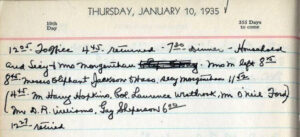 THURSDAY, JANUARY 10, 1935
10th Day 355 Days to come
12 05 To Office 4 45 returned - 7 30 Dinner - Household
and Secy & Mrs Morgenthau Mrs M 8 15
8 45 Messrs Oliphant Jackson & Hass, Secy Morgenthau 11 50
(4 45 Mr Harry Hopkins, Col Laurence Westbrook, Mr O'Neil Ford)
Mr D. R. Williams, Guy Shepeson 6 00
retired